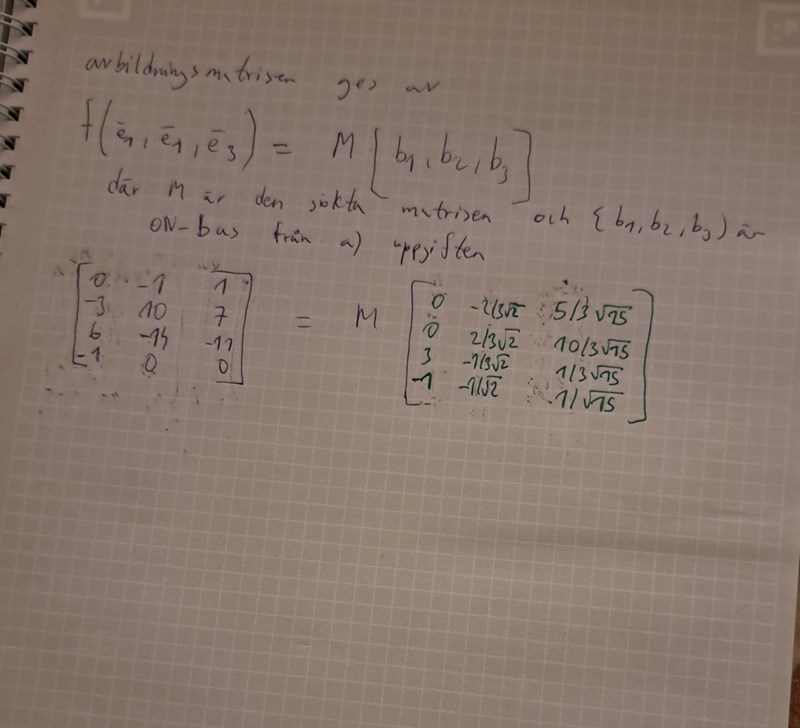 avbildningsmatrisen ges av
f(ē1, ē1, ē3) = M [b1, b2, b3]
där M är den sökta matrisen och {b1, b2, b3) är
ON-bas från a) uppgiften
0 -1 1 0 -2/3√2 5/3√15
-3 10 7 = M 0 2/3√2 10/3√15
6 -14 -11 3 -1/3√2 1/3√15
-1 0 0 -1 -1/√2 1/√15